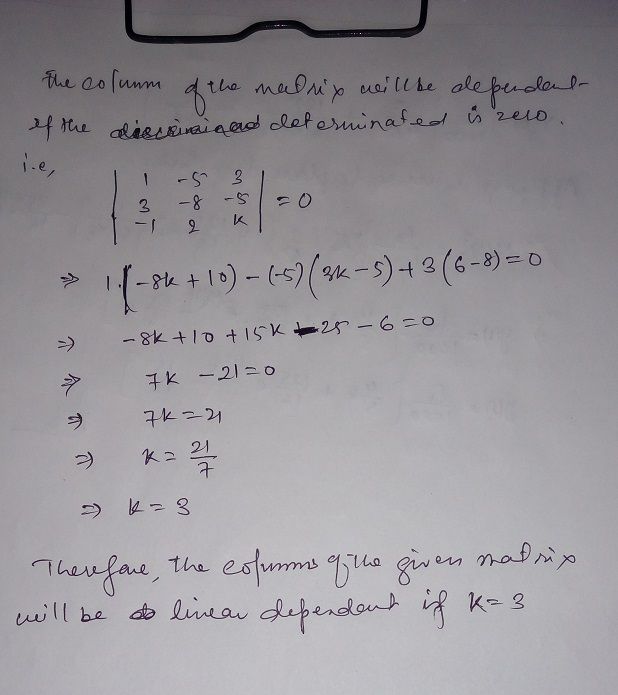 The column of the matrix will be dependent
if the determinated is zero.
i.e,
| 1 -5 3 |
| 3 -8 -5 | = 0
| -1 2 k |
⇒ 1.(-8k + 10) - (-5)(3k - 5) + 3(6 - 8) = 0
⇒ -8k + 10 + 15k - 25 - 6 = 0
⇒ 7k - 21 = 0
⇒ 7k = 21
⇒ k = 21/7
⇒ k = 3
Therefore, the columns of the given matrix
will be linear dependent if k = 3